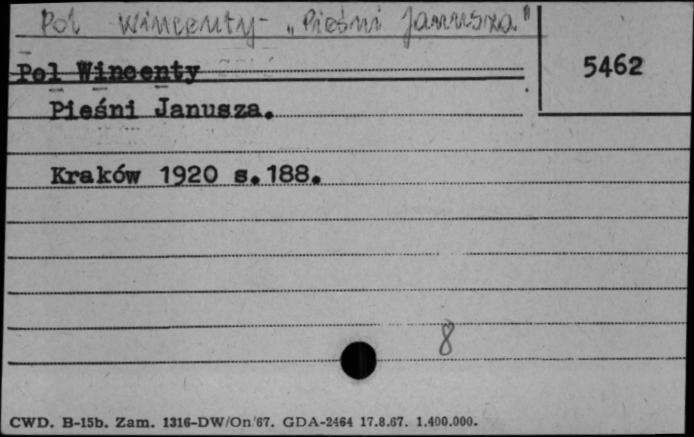 Pol Wincenty - "Pieśni Janusza"
5462
Pol Wincenty
Pieśni Janusza.
Kraków 1920 s.188.
8
CWD. B-15b. Zam. 1316-DW/On/67. GDA-2464 17.8.67. 1.400.000.